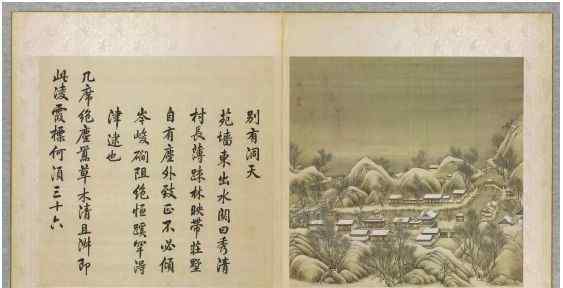 别有洞天
苑墻東出水關曰秀清
村長薄疎林映帶莊墅
自有塵外致正不必傾
岑峻磵阻絶恒蹊罕得
津逮也
几席絶塵囂草木清且淑即
此凌霞標何須三十六